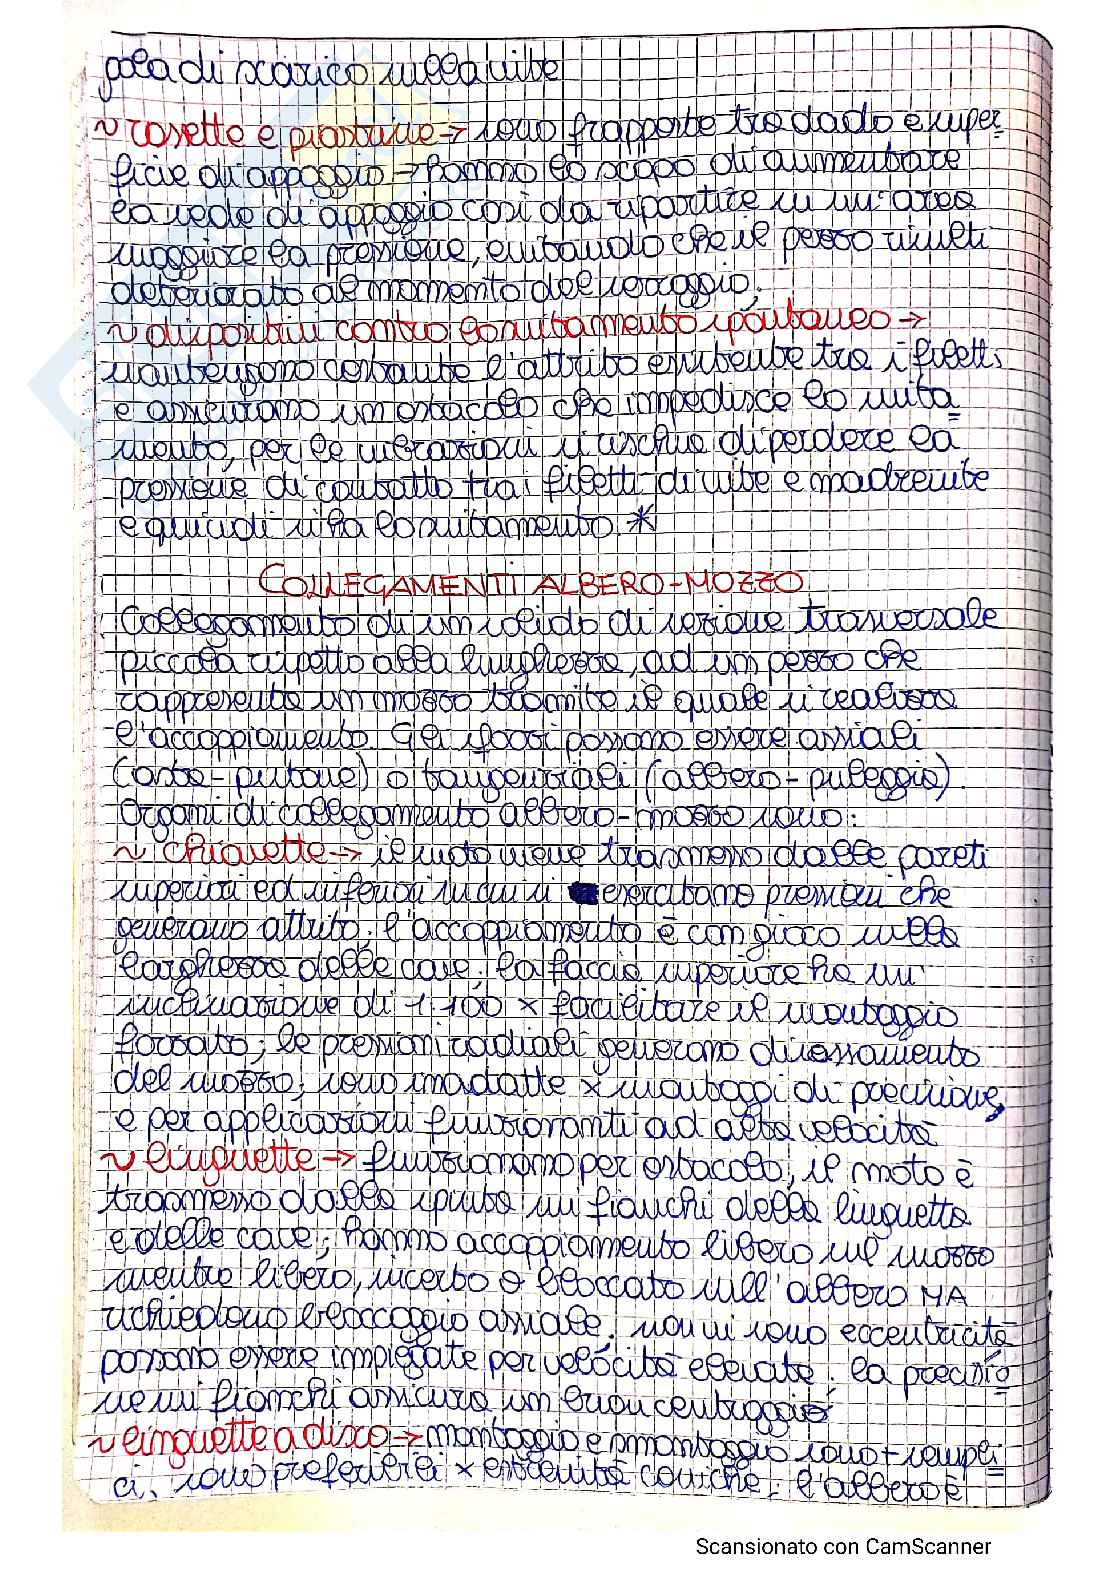 gola di scarico sulla vite
~ rosette e piastrine → sono frapposte tra dado e super=
ficie di appoggio → hanno lo scopo di aumentare
la sede di appoggio così da ripartire su un'area
maggiore la pressione, evitando che il pezzo risulti
deteriorato al momento del serraggio;
~ dispositivi contro lo svitamento spontaneo →
mantengono costante l'attrito esistente tra i filetti
e assicurano un ostacolo che impedisce lo svita=
mento, per le vibrazioni si rischia di perdere la
pressione di contatto tra i filetti di vite e madrevite
e quindi si ha lo svitamento. *
COLLEGAMENTI ALBERO-MOZZO
Collegamento di un solido di sezione trasversale
piccola rispetto alla lunghezza, ad un pezzo che
rappresenta un mozzo tramite il quale si realizza
l'accoppiamento. Gli sforzi possono essere assiali
(asta-pistone) o tangenziali (albero-puleggia).
Organi di collegamento albero-mozzo sono:
~ chiavette → il moto viene trasmesso dalle pareti
superiori ed inferiori su cui si esercitano pressioni che
generano attrito; l'accoppiamento è con gioco sulla
larghezza delle cave; la faccia superiore ha un'
inclinazione di 1:100 x facilitare il montaggio
forzato; le pressioni radiali generano disassamento
del mozzo; sono inadatte x montaggi di precisione,
e per applicazioni funzionanti ad alta velocità
~ linguette → funzionano per ostacolo; il moto è
trasmesso dalla spinta sui fianchi della linguetta
e delle cave; hanno accoppiamento libero sul mozzo
mentre libero, incerto o bloccato sull'albero MA
richiedono bloccaggio assiale. non vi sono eccentricità
possono essere impiegate per velocità elevate; la precisio=
ne sui fianchi assicura un buon centraggio
~ linguette a disco → montaggio e smontaggio sono + sempli=
ci; sono preferibili x estremità coniche; l'albero è
Scansionato con CamScanner